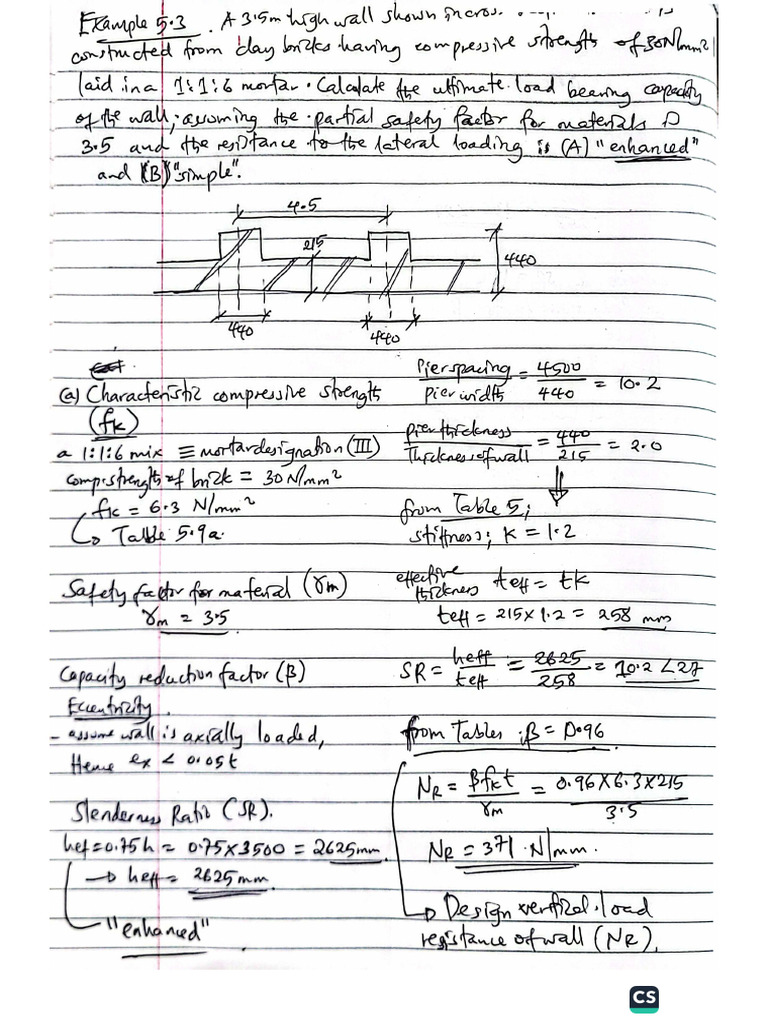 Example 5.3. A 3.5m high wall shown in cros.
constructed from clay bricks having compressive strength of 30N/mm²
laid in a 1:1:6 mortar. Calculate the ultimate load bearing capacity
of the wall, assuming the partial safety factor for materials is
3.5 and the resistance to the lateral loading is (A) "enhanced"
and (B) "simple".
4.5
215
440
440
440
(a) Characteristic compressive strength
(fk)
a 1:1:6 mix ≡ mortar designation (III)
comp. strength of brick = 30 N/mm²
fk = 6.3 N/mm²
Table 5.9a.
Safety factor for material (γm)
γm = 3.5
Capacity reduction factor (β)
Eccentricity.
- assume wall is axially loaded,
Hence ex < 0.05t
Slenderness Ratio (SR).
hef = 0.75h = 0.75 × 3500 = 2625mm
→ heff = 2625mm
"enhanced"
Pier spacing / Pier width = 4500 / 440 = 10.2
pier thickness / Thickness of wall = 440 / 215 = 2.0
from Table 5;
stiffness; K = 1.2
effective thickness teff = tk
teff = 215 × 1.2 = 258 mm
SR = heff / teff = 2625 / 258 = 10.2 < 27
from Tables; β = 0.96
NR = βfkt / γm = 0.96 × 6.3 × 215 / 3.5
NR = 371 N/mm.
→ Design vertical load
resistance of wall (NR).
CS